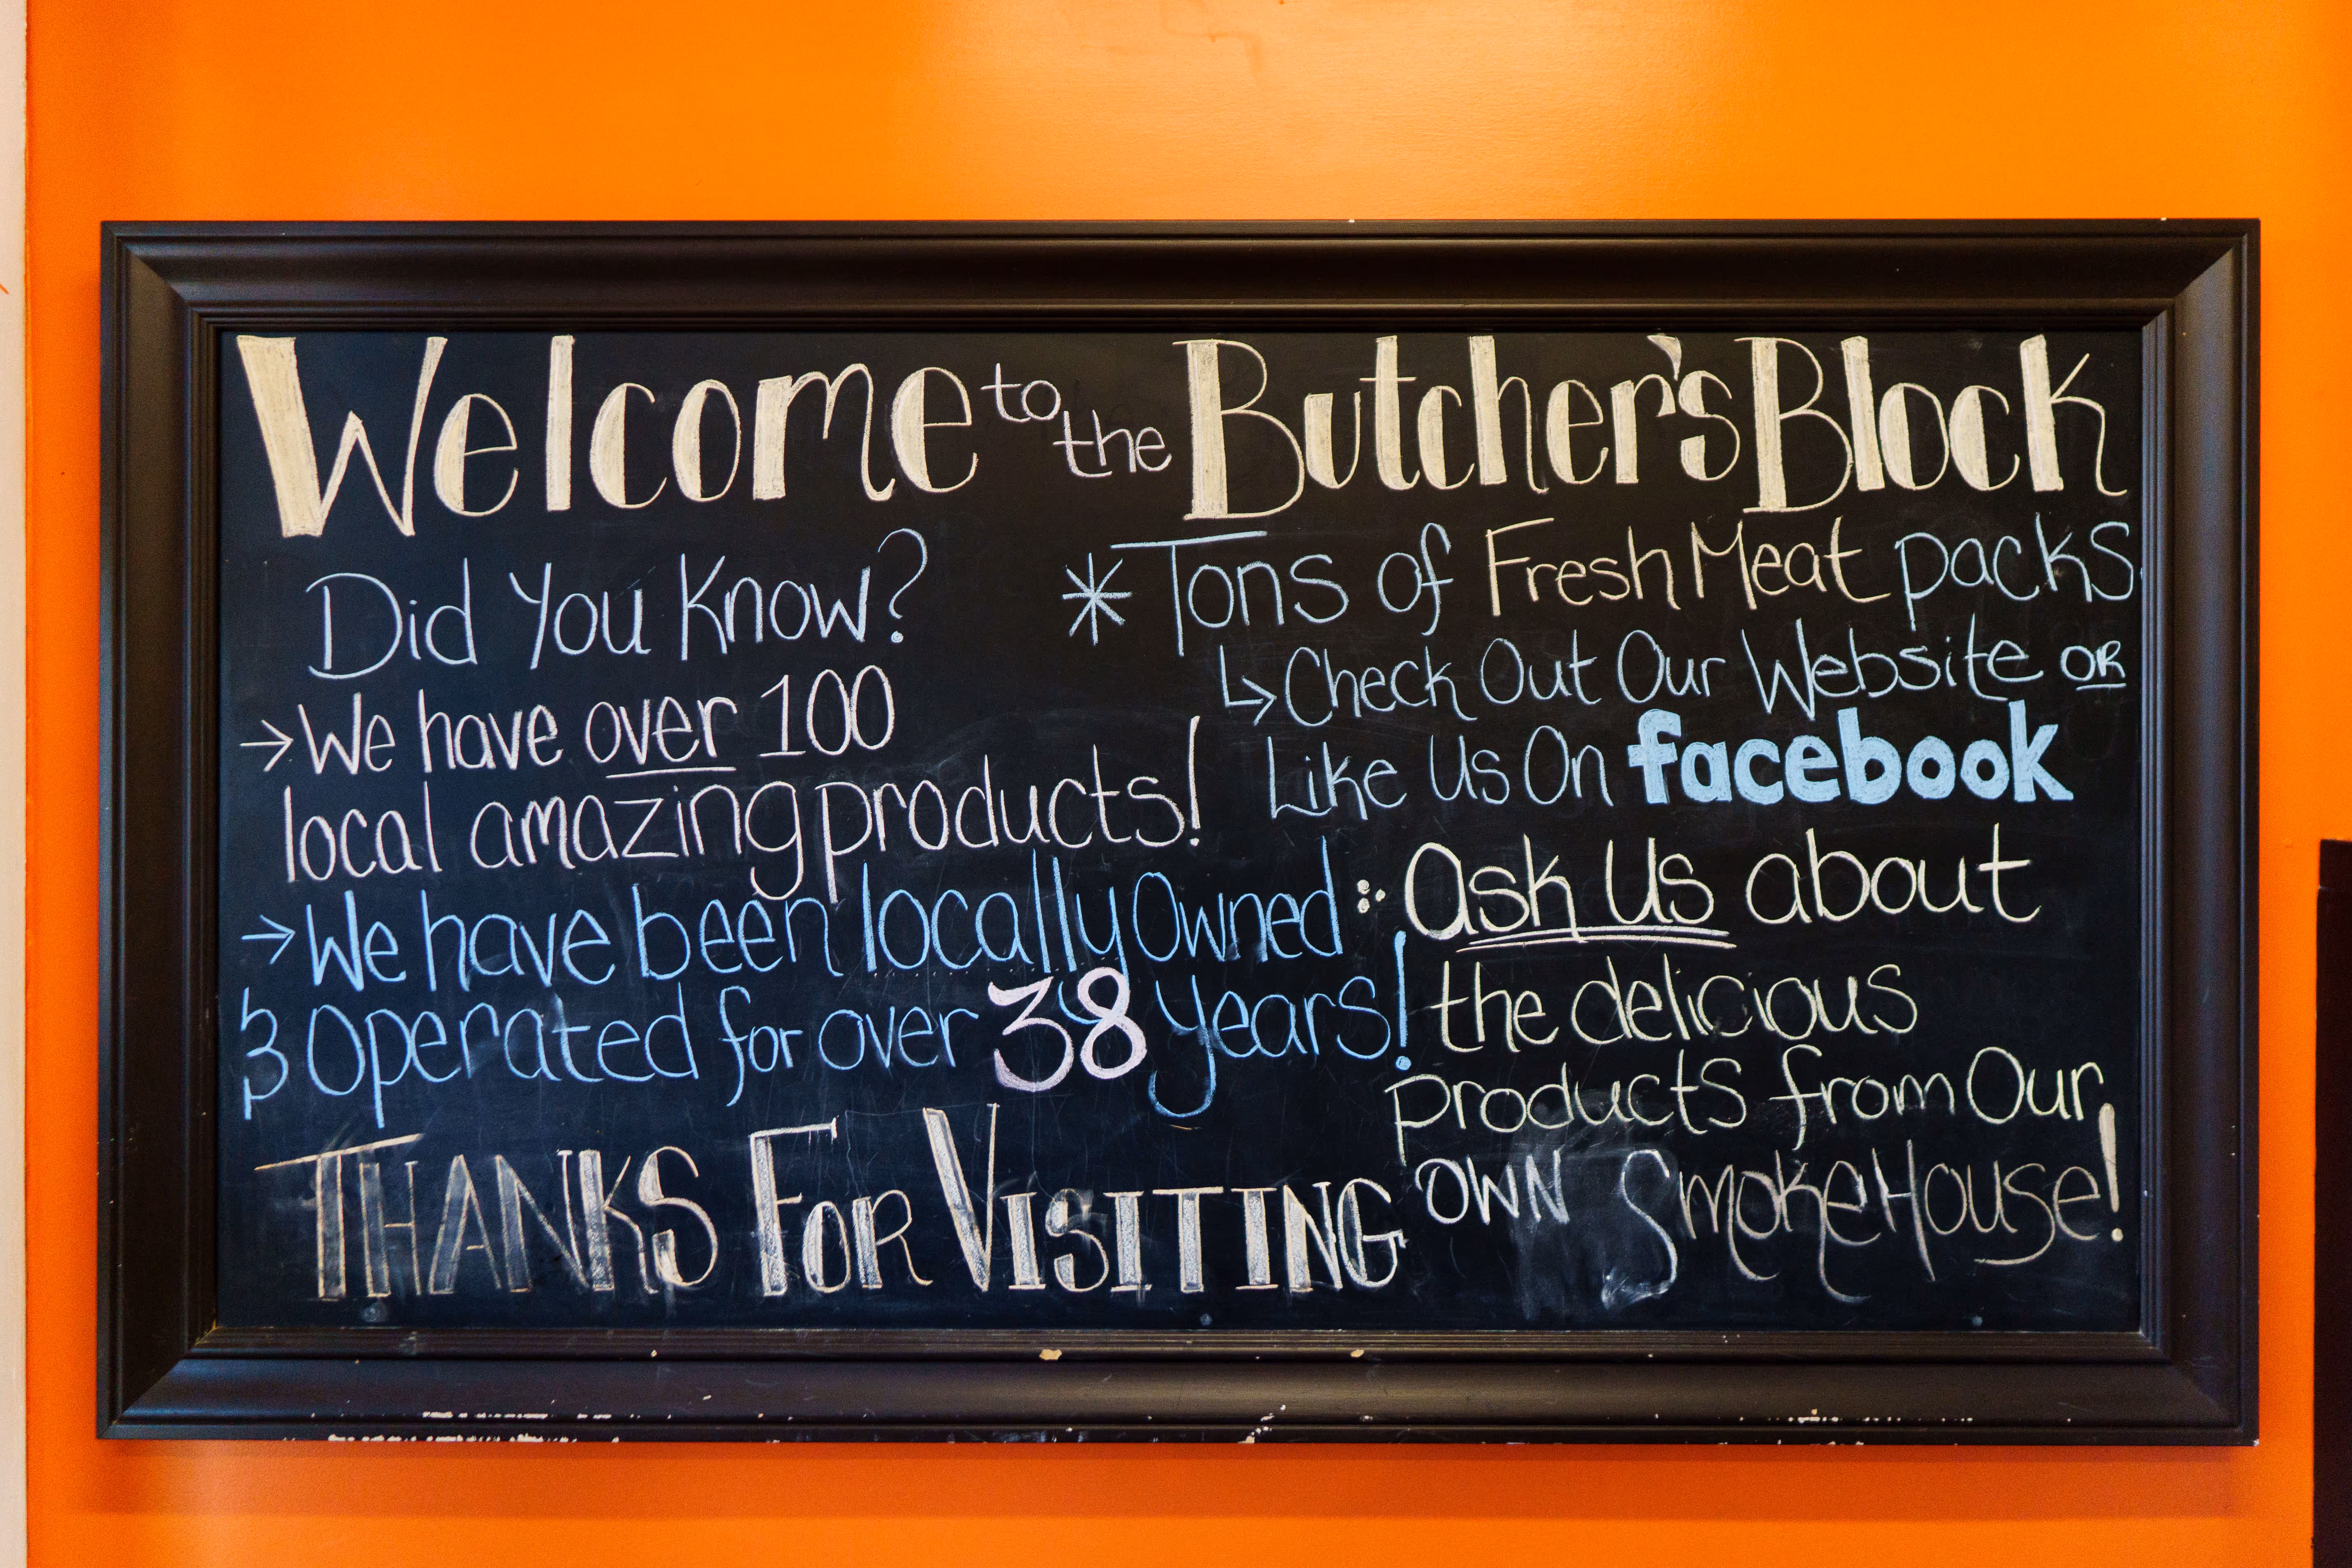 Welcome to the Butcher's Block
Did You Know?
→We have over 100
local amazing products!
→We have been locally Owned
& Operated for over 38 years!
THANKS FOR VISITING
* Tons of Fresh Meat packs
↳Check Out Our Website OR
Like Us On facebook
Ask Us about
the delicious
products from Our
OWN SmokeHouse!